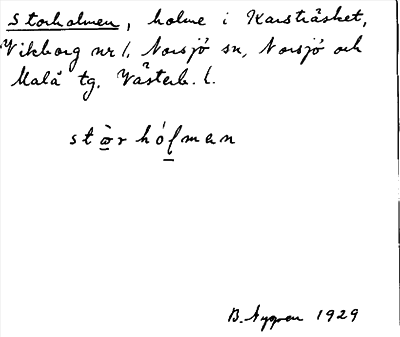 Storholmen, holme i Karsträsket,
Vikborg nr 1, Norsjö sn, Norsjö och
Malå tg. Västerb. l.
stòrhólman
B. Nygren 1929